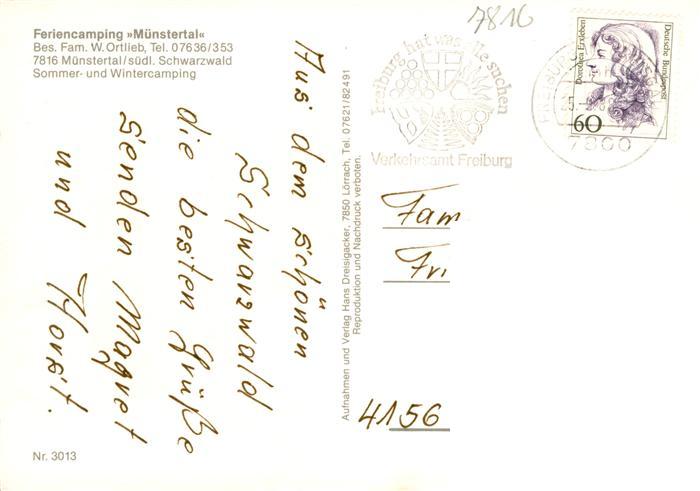 Feriencamping »Münstertal«
Bes. Fam. W. Ortlieb, Tel. 07636/353
7816 Münstertal/südl. Schwarzwald
Sommer- und Wintercamping
Aus dem schönen
Schwarzwald
die besten Grüße
senden Magret
und Horst.
Nr. 3013
Aufnahmen und Verlag Hans Dreisigacker, 7850 Lörrach, Tel. 07621/82491
Reproduktion und Nachdruck verboten.
7816
Freiburg hat was alle suchen
Verkehrsamt Freiburg
7800
Dorothea Erxleben
Deutsche Bundespost
60
Fam
Fri
4156